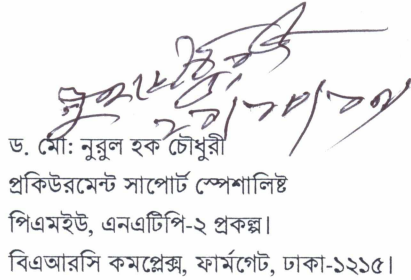 ড. মো: নুরুল হক চৌধুরী
প্রকিউরমেন্ট সাপোর্ট স্পেশালিষ্ট
পিএমইউ, এনএটিপি-২ প্রকল্প।
বিএআরসি কমপ্লেক্স, ফার্মগেট, ঢাকা-১২১৫।